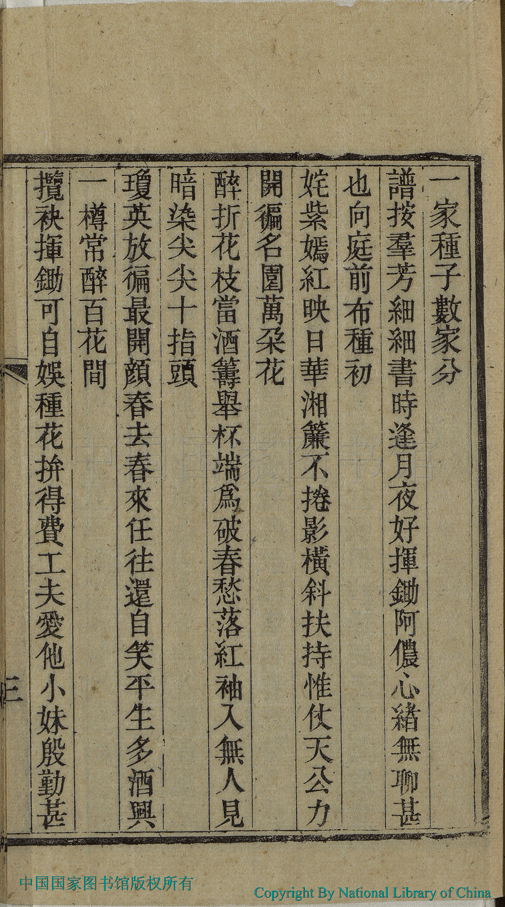 一家種子數家分
譜按羣芳細細書時逢月夜好揮鋤阿儂心緒無聊甚
也向庭前布種初
姹紫嫣紅映日華湘簾不捲影橫斜扶持惟仗天公力
開徧名園萬朶花
醉折花枝當酒籌舉杯端爲破春愁落紅袖入無人見
暗染尖尖十指頭
瓊英放徧最開顔春去春來任往還自笑平生多酒興
一樽常醉百花間
攬袂揮鋤可自娛種花拚得費工夫愛他小妹殷勤甚
三
中国国家图书馆版权所有
Copyright By National Library of China